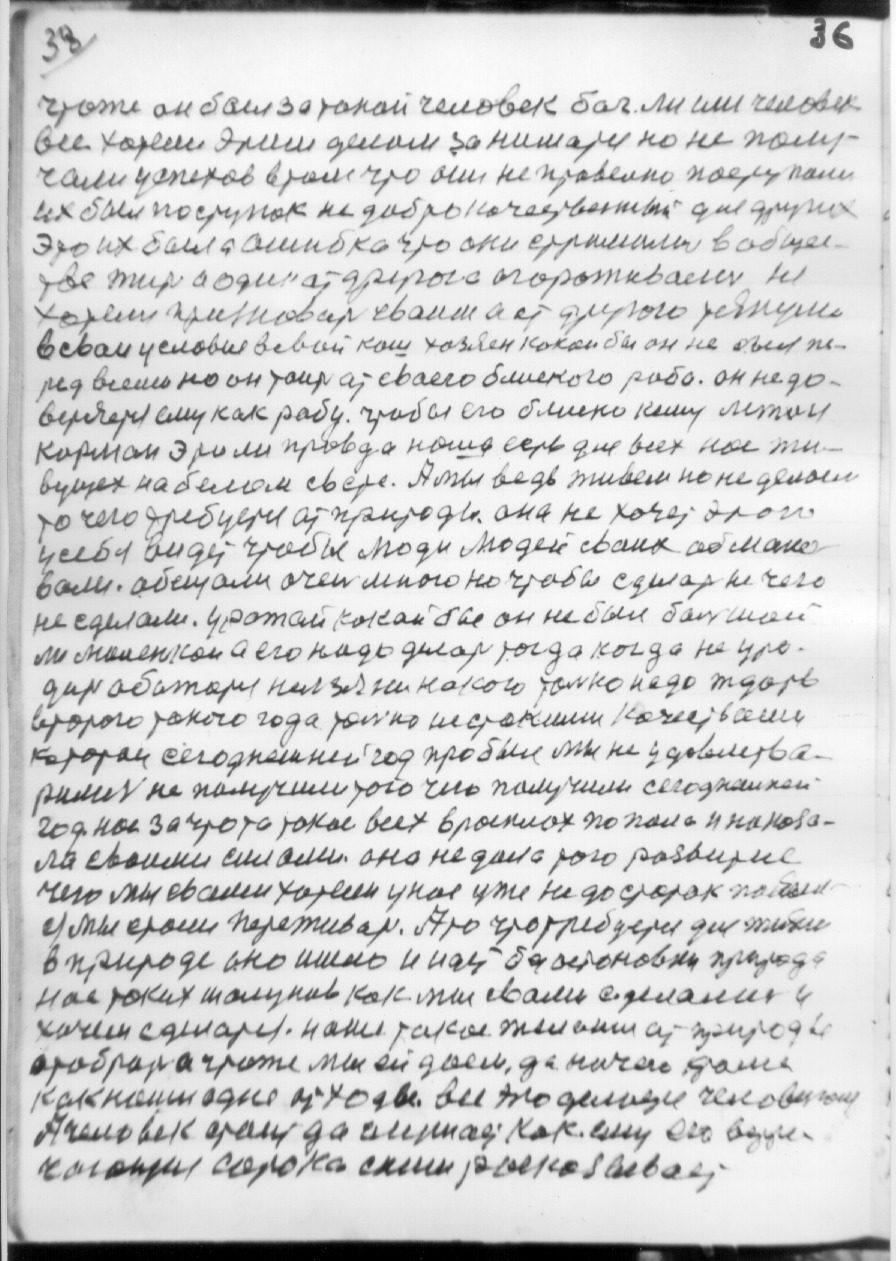 38 36
чтоже он был за такой человек бог. ли или человек
все хотели этим делом заниматя но не полу-
чали успехов втом что они не правелно поступали
их был поступок не доброкачественный для других
Это их была ошибка что они стримили в обще-
тве жит а один от другога огораживаели не
хотели признават сваи а от другого
в сваи условие в свой кош хозяен какой бы он не был пе-
ред всеми но он таит от своего близкого раба. он не до-
веряетя ему как рабу. чтобы его близко кему
Это ли правда наша есть для всех нас жи-
вущех на белом свете. А мы ведь живем но не делаем
то чего требуетя от природы. она не хочет этого
у себя видет чтобы люди людей сваих обмано
вали. обещали очен много но чтобы сделат не чего
не сделали. урожай какой бы он не был болшой
ли маленкои а его надо делат тогда когда не уро-
дит обижатя нелзя ни накого толко надо ждать
второго такого года толко нестакими качествами
каторои сегоднешнеи год пробыл мы не удовлетва-
рилис не получили того чего получили сегоднешней
год. нас за что та такое всех врасплох попала и показа-
ла своими силами. она не дала того развитие
чего мы свами хотели у нас уже не достаток
мы стали переживат. А то что требуетя для жизни
в природе оно ишло и идет без остоновки природа
нас таких шалунов как мы свами сделалис и
хочем сделатя. наше такое желание от природы
отобрат а чтоже мы ей даем, да ничего кроме
как наши одне отходы. все это делаетя человеком
А человек стоит да слушает как. ему его
сорока рассказывает